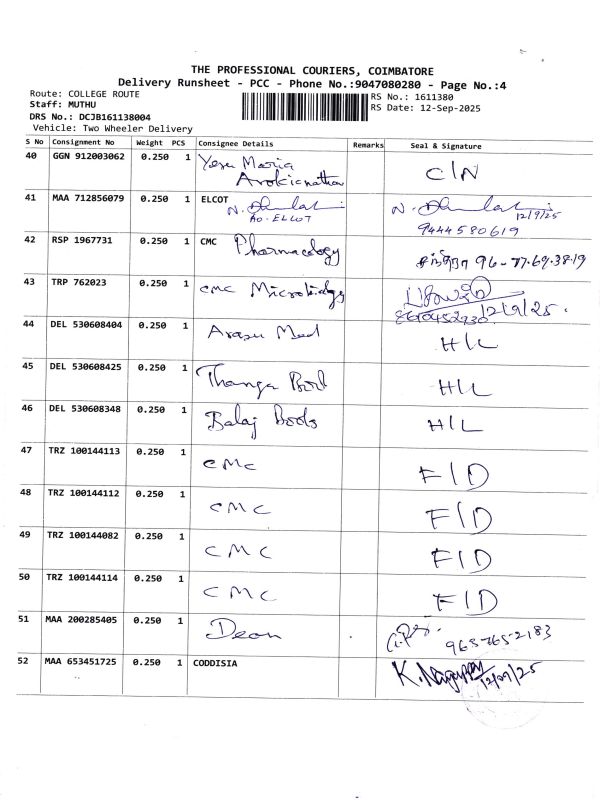 THE PROFESSIONAL COURIERS, COIMBATORE
Delivery Runsheet - PCC - Phone No.:9047080280 - Page No.:4
Route: COLLEGE ROUTE
RS No.: 1611380
Staff: MUTHU
RS Date: 12-Sep-2025
DRS No.: DCJB161138004
Vehicle: Two Wheeler Delivery
S No Consignment No Weight PCS Consignee Details Remarks Seal & Signature
40 GGN 912003062 0.250 1 Yesu Maria
Arokianathan C/N
41 MAA 712856079 0.250 1 ELCOT
AO. ELCOT 12/9/25
9444580619
42 RSP 1967731 0.250 1 CMC Pharmacology 96-77.69.3819
43 TRP 762023 0.250 1 CMC Microbiology
12/9/25.
44 DEL 530608404 0.250 1 Arasu Med H/L
45 DEL 530608425 0.250 1 Thanga H/L
46 DEL 530608348 0.250 1 Balaj Books H/L
47 TRZ 100144113 0.250 1 CMC F/D
48 TRZ 100144112 0.250 1 CMC F/D
49 TRZ 100144082 0.250 1 CMC F/D
50 TRZ 100144114 0.250 1 CMC F/D
51 MAA 200285405 0.250 1 Dean
52 MAA 653451725 0.250 1 CODDISIA
12/09/25